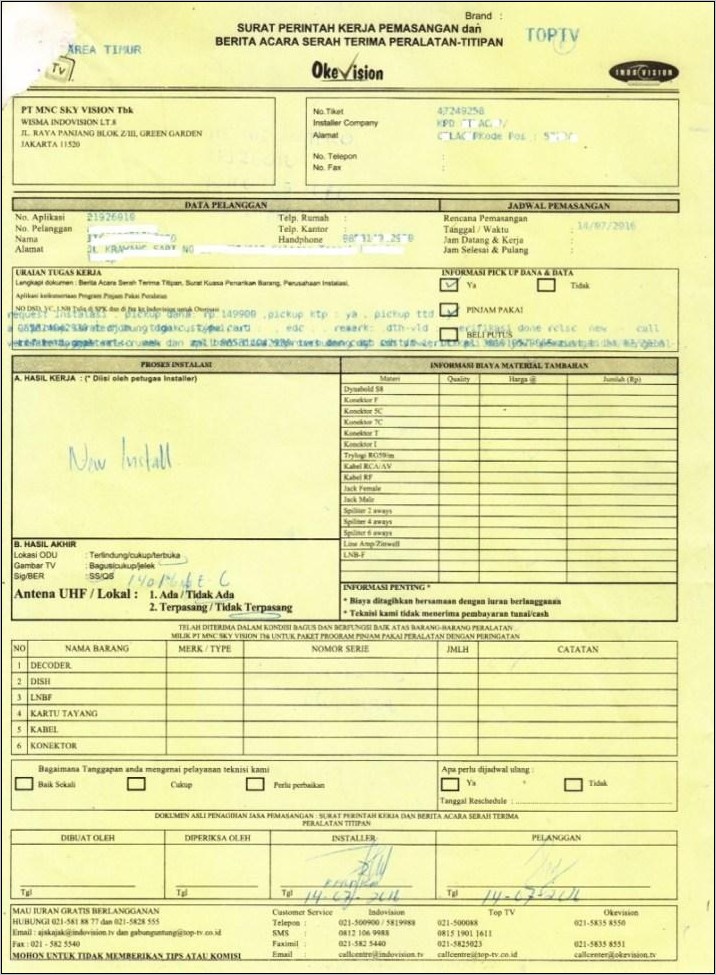 Brand :
SURAT PERINTAH KERJA PEMASANGAN dan
BERITA ACARA SERAH TERIMA PERALATAN-TITIPAN
TOPTV
AREA TIMUR
Tv
OkeVision
INDOVISION
PT MNC SKY VISION Tbk
WISMA INDOVISION LT.8
JL. RAYA PANJANG BLOK Z/III, GREEN GARDEN
JAKARTA 11520
No.Tiket : 47249258
Installer Company : KPD
Alamat : Kode Pos :
No. Telepon :
No. Fax :
DATA PELANGGAN
JADWAL PEMASANGAN
No. Aplikasi : 21926010
No. Pelanggan :
Nama :
Alamat : JL KRAMANG SARI NO
Telp. Rumah :
Telp. Kantor :
Handphone :
Rencana Pemasangan
Tanggal / Waktu : 14/07/2016
Jam Datang & Kerja :
Jam Selesai & Pulang :
URAIAN TUGAS KERJA
Lengkapi dokumen : Berita Acara Serah Terima Titipan, Surat Kuasa Penarikan Barang, Perusahaan Instalasi.
Aplikasi keikutsertaan Program Pinjam Pakai Peralatan
NO DSD, VC, LNB Tulis di SPK dan di fax ke Indovision untuk Otorisasi
request instalasi . pickup dana: rp.149900 ,pickup ktp : ya , pickup ttd
edc , remark: dth-vld verifikasi done rclsc new call
INFORMASI PICK UP DANA & DATA
Ya
Tidak
PINJAM PAKAI
BELI PUTUS
PROSES INSTALASI
A. HASIL KERJA : (* Diisi oleh petugas Installer)
New Install
B. HASIL AKHIR
Lokasi ODU : Terlindung/cukup/terbuka
Gambar TV : Bagus/cukup/jelek
Sig/BER : SS/QS
Antena UHF / Lokal : 1. Ada / Tidak Ada
2. Terpasang / Tidak Terpasang
INFORMASI BIAYA MATERIAL TAMBAHAN
Materi Quality Harga @ Jumlah (Rp)
Dynabold S8
Konektor F
Konektor 5C
Konektor 7C
Konektor T
Konektor I
Trylogi RG59/m
Kabel RCA/AV
Kabel RF
Jack Female
Jack Male
Spiliter 2 aways
Spiliter 4 aways
Spiliter 6 aways
Line Amp/Zinwell
LNB-F
INFORMASI PENTING *
* Biaya ditagihkan bersamaan dengan iuran berlangganan
* Teknisi kami tidak menerima pembayaran tunai/cash
TELAH DITERIMA DALAM KONDISI BAGUS DAN BERFUNGSI BAIK ATAS BARANG-BARANG PERALATAN
MILIK PT MNC SKY VISION Tbk UNTUK PAKET PROGRAM PINJAM PAKAI PERALATAN DENGAN PERINGATAN
NO NAMA BARANG MERK / TYPE NOMOR SERIE JMLH CATATAN
1 DECODER
2 DISH
3 LNBF
4 KARTU TAYANG
5 KABEL
6 KONEKTOR
Bagaimana Tanggapan anda mengenai pelayanan teknisi kami
Baik Sekali
Cukup
Perlu perbaikan
Apa perlu dijadwal ulang :
Ya
Tidak
Tanggal Reschedule :
DOKUMEN ASLI PENAGIHAN JASA PEMASANGAN : SURAT PERINTAH KERJA DAN BERITA ACARA SERAH TERIMA
PERALATAN TITIPAN
DIBUAT OLEH DIPERIKSA OLEH INSTALLER PELANGGAN
Tgl Tgl Tgl 14-07-2016 Tgl 14-07-2016
MAU IURAN GRATIS BERLANGGANAN
HUBUNGI 021-581 88 77 dan 021-5828 555
Email : ajskajak@indovision.tv dan gabunguntung@top-tv.co.id
Fax : 021 - 582 5540
MOHON UNTUK TIDAK MEMBERIKAN TIPS ATAU KOMISI
Customer Service Indovision Top TV Okevision
Telepon : 021-500900 / 5819988 021-500088 021-5835 8550
SMS : 0812 106 9988 0815 1901 1611
Faximil : 021-582 5440 021-5825023 021-5835 8551
Email : callcentre@indovision.tv callcentre@top-tv.co.id callcenter@okevision.tv